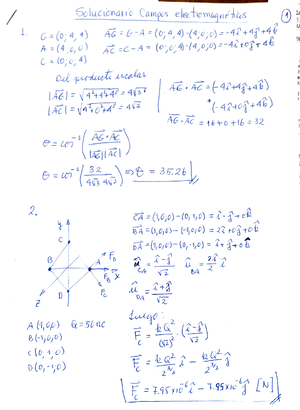 Solucionario Campos electromagnéticos
1
1.
G = (0; 4, 4)
A = (4, 0, 0)
C = (0, 0, 4)
AG = G - A = (0; 4, 4) - (4, 0, 0) = -4i + 4j + 4k
AC = C - A = (0, 0, 4) - (4, 0, 0) = -4i + 0j + 4k
Del producto escalar
|AG| = √4²+4²+4² = 4√3
|AC| = √4²+0²+4² = 4√2
AG · AC = (-4i + 4j + 4k)
· (-4i + 0j + 4k)
AG · AC = 16 + 0 + 16 = 32
θ = cos⁻¹ (AG · AC / |AG||AC|)
θ = cos⁻¹ (32 / 4√3 4√2) ⟹ θ = 35.26
2.
y
C
B
A
F_D
x
F_B
F_C
Z
D
A (1,0,0) Q = 50 nC
B (-1,0,0)
C (0, 1, 0)
D (0, -1, 0)
CA = (1,0,0) - (0,1,0) = i - j + 0k
BA = (1,0,0) - (-1,0,0) = 2i + 0j + 0k
DA = (1,0,0) - (0,-1,0) = i + j + 0k
u_CA = i - j / √2 u_BA = 2i / 2
u_DA = i + j / √2
Luego:
F_C = kQ² / (√2)² · (i - j / √2)
F_C = kQ² / 2^3/2 i - kQ² / 2^3/2 j
F_C = 7.95 x10⁻⁶ i - 7.95 x10⁻⁶ j [N]